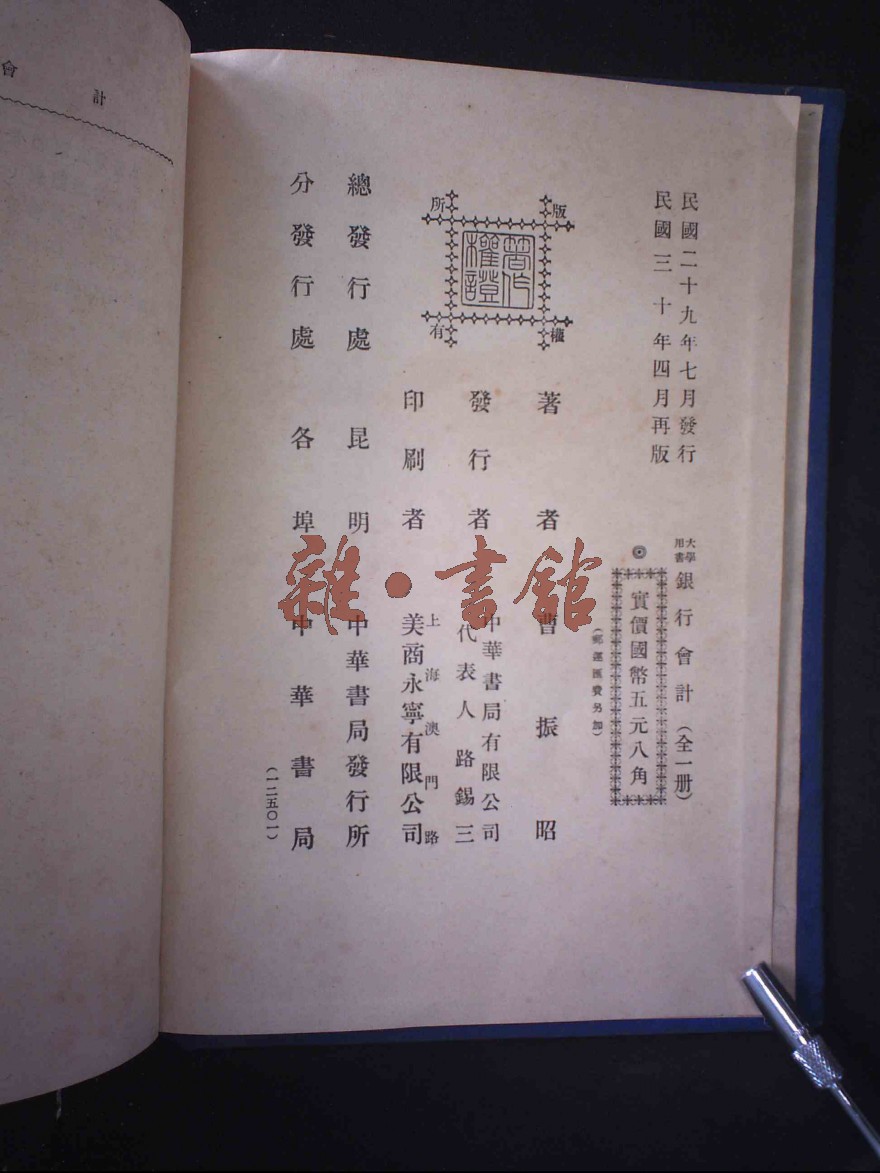 民國二十九年七月發行
民國三十年四月再版
大學用書
銀行會計（全一册）
◎
實價國幣五元八角
（郵運匯費另加）
版權所有
著作權證
著者 曹振昭
發行者 中華書局有限公司
代表人 路錫三
印刷者 上海澳門路
美商永寧有限公司
總發行處 昆明 中華書局發行所
分發行處 各埠 中華書局
（一二五〇一）
會計
雜·書館